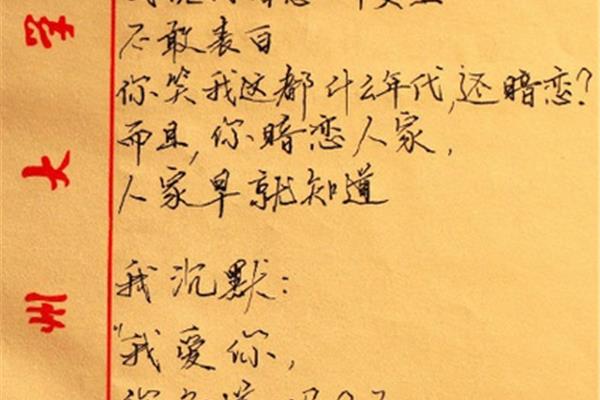 不敢表白
你笑我这都什么年代,还暗恋?
而且,你暗恋人家,
人家早就知道
我沉默:
"我爱你,
学
大
州